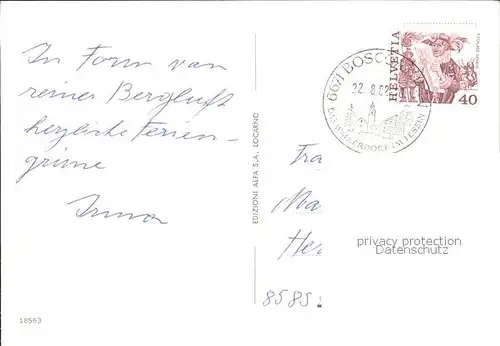 In Form von
reiner Bergluft
herzliche Ferien-
grüsse
EDIZIONI ALFA S.A. LOCARNO
18563
6671 BOSCO
22.8.82
DAS WALSERDORF IM TESSIN
HELVETIA
40
Fra
Ma
Her
8585
privacy protection
Datenschutz